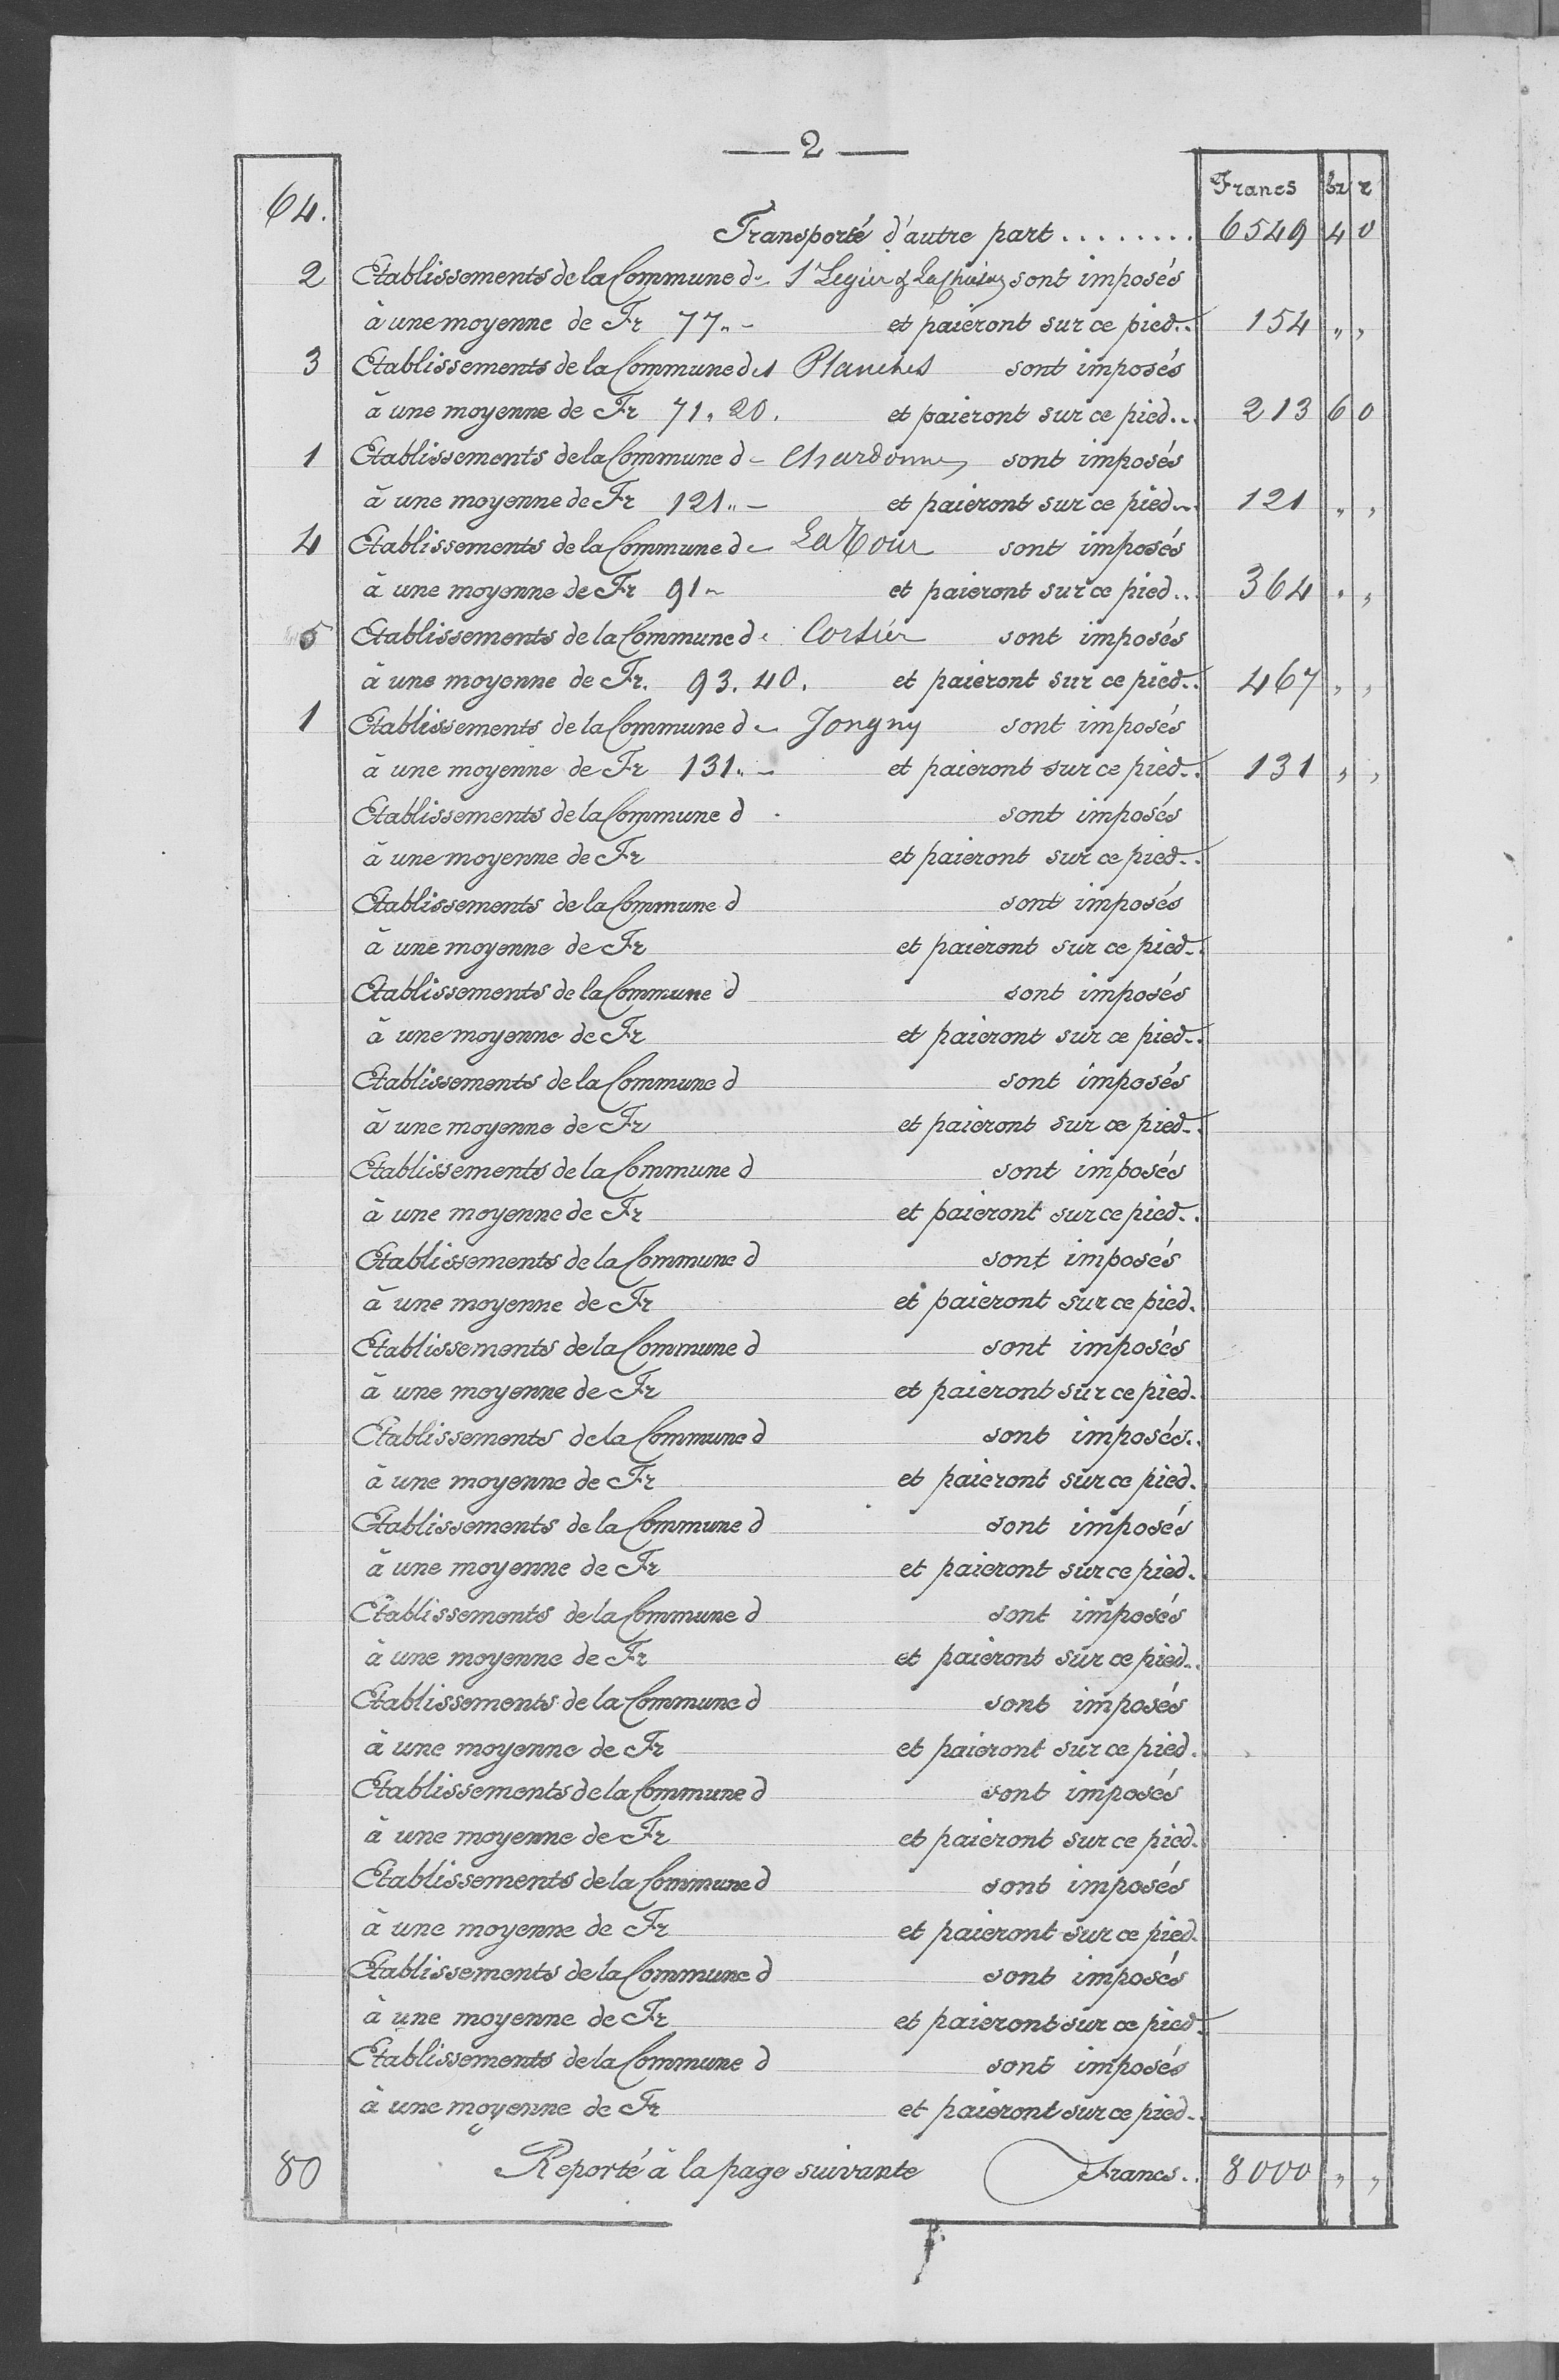 — 2 —
Francs bz r
64. Transporté d'autre part ........ 6549 4 0
2 Etablissements de la Commune de St Legier & La Chiésaz sont imposés
à une moyenne de Fr 77 „ - et paieront sur ce pied .. 154 „ „
3 Etablissements de la Commune des Planches sont imposés
à une moyenne de Fr 71 „ 20. et paieront sur ce pied ... 213 6 0
1 Etablissements de la Commune de Chardonne sont imposés
à une moyenne de Fr 121 „ - et paieront sur ce pied ... 121 „ „
4 Etablissements de la Commune de La Tour sont imposés
à une moyenne de Fr 91 „ et paieront sur ce pied ... 364 „ „
5 Etablissements de la Commune de Corsier sont imposés
à une moyenne de Fr. 93. 40. et paieront sur ce pied .. 467 „ „
1 Etablissements de la Commune de Jongny sont imposés
à une moyenne de Fr 131 „ - et paieront sur ce pied .. 131 „ „
Etablissements de la Commune d sont imposés
à une moyenne de Fr et paieront sur ce pied ..
Etablissements de la Commune d sont imposés
à une moyenne de Fr et paieront sur ce pied ..
Etablissements de la Commune d sont imposés
à une moyenne de Fr et paieront sur ce pied ..
Etablissements de la Commune d sont imposés
à une moyenne de Fr et paieront sur ce pied ..
Etablissements de la Commune d sont imposés
à une moyenne de Fr et paieront sur ce pied ..
Etablissements de la Commune d sont imposés
à une moyenne de Fr et paieront sur ce pied .
Etablissements de la Commune d sont imposés
à une moyenne de Fr et paieront sur ce pied .
Etablissements de la Commune d sont imposés..
à une moyenne de Fr et paieront sur ce pied .
Etablissements de la Commune d sont imposés
à une moyenne de Fr et paieront sur ce pied .
Etablissements de la Commune d sont imposés
à une moyenne de Fr et paieront sur ce pied ..
Etablissements de la Commune d sont imposés
à une moyenne de Fr et paieront sur ce pied .
Etablissements de la Commune d sont imposés
à une moyenne de Fr et paieront sur ce pied .
Etablissements de la Commune d sont imposés
à une moyenne de Fr et paieront sur ce pied .
Etablissements de la Commune d sont imposés
à une moyenne de Fr et paieront sur ce pied .
Etablissements de la Commune d sont imposés
à une moyenne de Fr et paieront sur ce pied .
80 Reporté à la page suivante Francs .. 8000 „ „